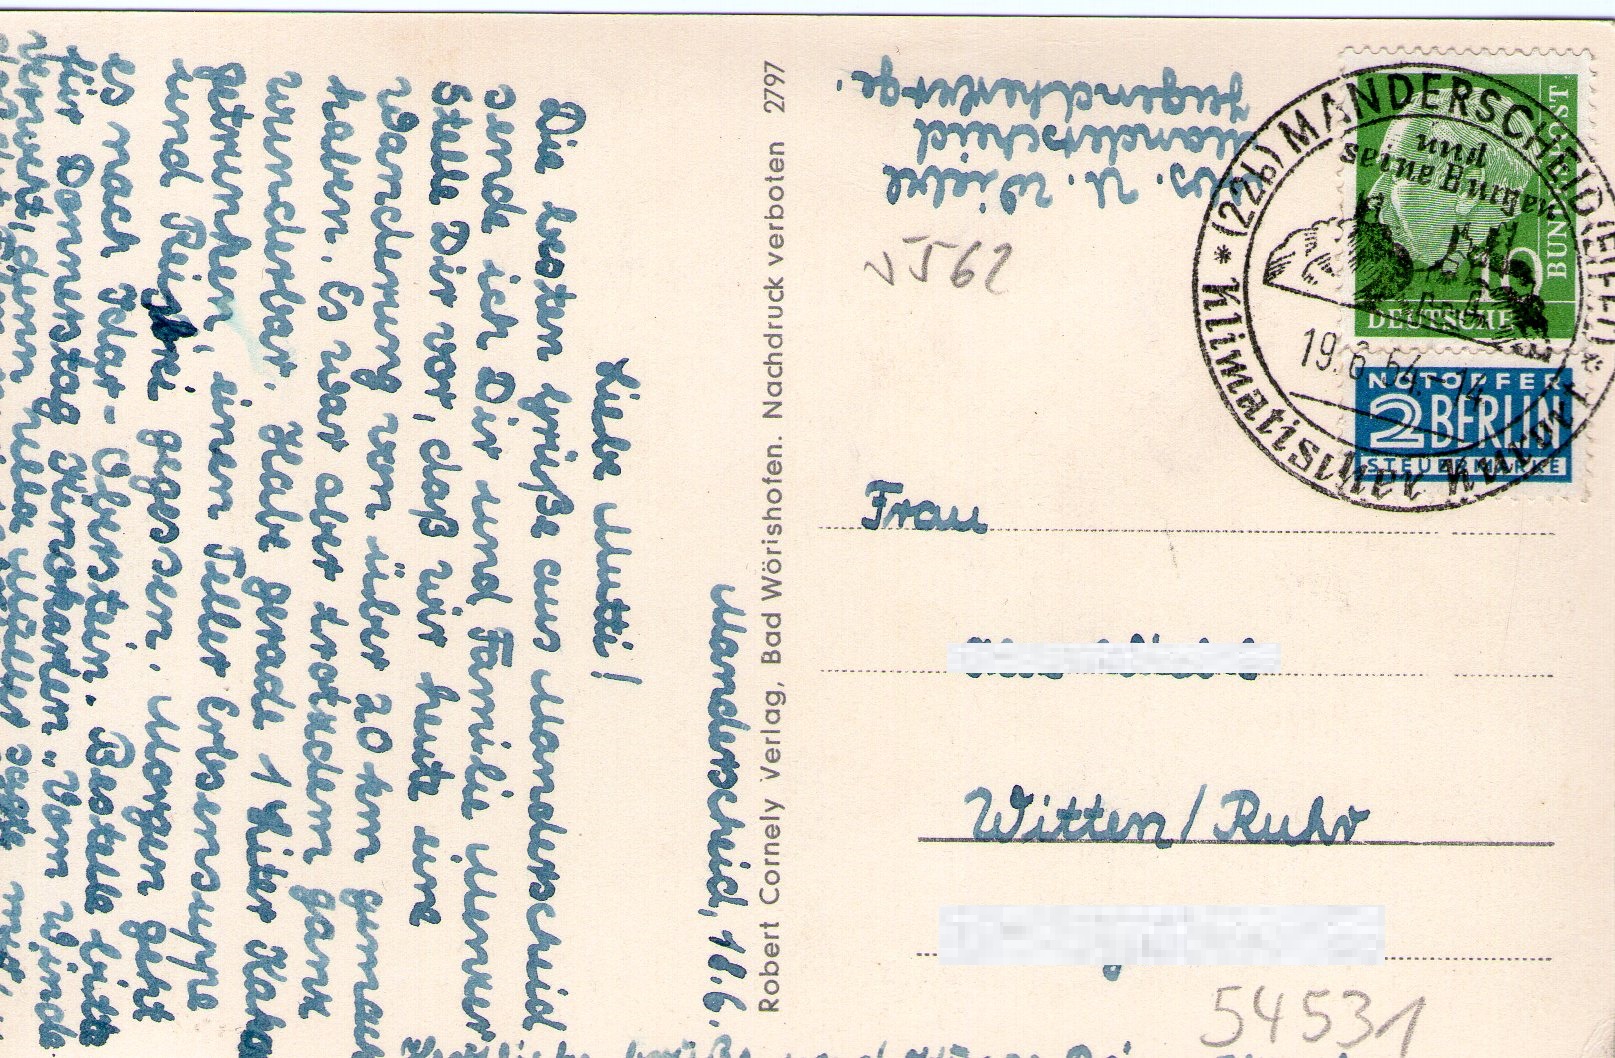 Manderscheid, 18.6.
Liebe Mutti!
Die besten Grüße aus Manderscheid
sende ich Dir und Familie
Stelle Dir vor, daß wir heute eine
Wanderung von über 20 km gemacht
haben. Es war aber trotzdem ganz
wunderbar. Habe grade 1 Liter Kakao
getrunken, einen Teller Erbsensuppe
und gegessen. Morgen geht
es nach Idar-Oberstein. Bestelle bitte
für Donnerstag Karten „Vom Winde
verweht",
Herzliche Grüße und
Robert Cornely Verlag, Bad Wörishofen. Nachdruck verboten 2797
Manderscheid
Jugendherberge.
5562
(22b) MANDERSCHEID (EIFEL) * Klimatischer Kurort *
und
seine Burgen
19.6.54.-14
DEUTSCHE
BUNDESPOST
NOTOPFER
2 BERLIN
STEUERMARKE
Frau
Witten/Ruhr
54531